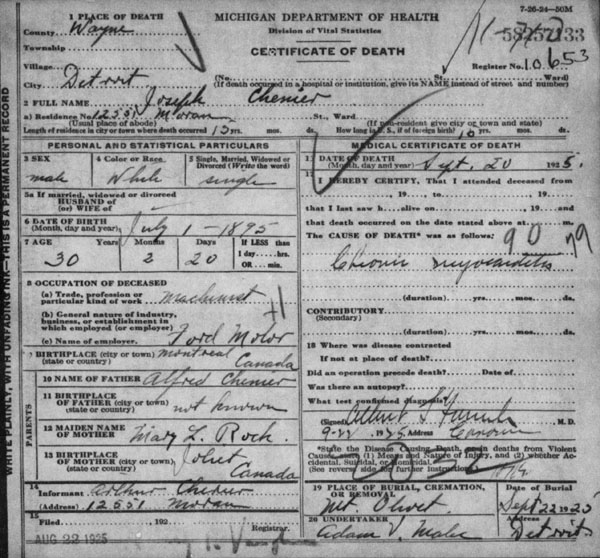 7-26-24—50M
1 PLACE OF DEATH
MICHIGAN DEPARTMENT OF HEALTH
County Wayne
Division of Vital Statistics
Township
CERTIFICATE OF DEATH
Village
Register No. 10653
City Detroit (No. St. Ward)
(If death occurred in a hospital or institution, give its NAME instead of street and number)
2 FULL NAME Joseph Chenier
a) Residence No. 12551 Moran St., Ward
(Usual place of abode) (If non-resident give city or town and state)
Length of residence in city or town where death occurred 13 yrs. mos. ds. How long in U. S., if of foreign birth? 10 yrs. mos. ds.
PERSONAL AND STATISTICAL PARTICULARS
MEDICAL CERTIFICATE OF DEATH
3 SEX 4 Color or Race 5 Single, Married, Widowed or Divorced (Write the word)
male White single
DATE OF DEATH (Month, day and year) Sept. 20 1925.
17 I HEREBY CERTIFY, That I attended deceased
from , 19 , to , 19
5a If married, widowed or divorced
HUSBAND of
(or) WIFE of
that I last saw h alive on , 19
and that death occurred on the date stated above at m.
6 DATE OF BIRTH (Month, day and year) July 1-1895
The CAUSE OF DEATH* was as follows: 90
7 AGE Years Months Days If LESS than 1 day hrs. OR min.
30 2 20
Chronic myocarditis
(duration) yrs. mos. ds.
8 OCCUPATION OF DECEASED
(a) Trade, profession or particular kind of work machinist
(b) General nature of industry, business, or establishment in which employed (or employer)
(c) Name of employer Ford Motor
CONTRIBUTORY (Secondary)
(duration) yrs. mos. ds.
18 Where was disease contracted
If not at place of death?
9 BIRTHPLACE (city or town) Montreal
(state or country) Canada
Did an operation precede death? Date of
Was there an autopsy?
What test confirmed diagnosis?
10 NAME OF FATHER Alfred Chenier
11 BIRTHPLACE OF FATHER (city or town) (state or country) not known
(Signed) Albert L. M. D.
9-22 1925 Address
PARENTS
12 MAIDEN NAME OF MOTHER Mary L. Rock
*State the Disease Causing Death, or in deaths from Violent Causes, state (1) Means and Nature of Injury, and (2) whether Accidental, Suicidal, or Homicidal.
13 BIRTHPLACE OF MOTHER (city or town) Joliet
(state or country) Canada
14 Informant Arthur Chenier
(Address) 12551 Moran
19 PLACE OF BURIAL, CREMATION, OR REMOVAL Date of Burial
Mt. Olivet Sept 22 1925
15 Filed , 192
Registrar.
20 UNDERTAKER Address
Adam V. Detroit
WRITE PLAINLY, WITH UNFADING INK—THIS IS A PERMANENT RECORD